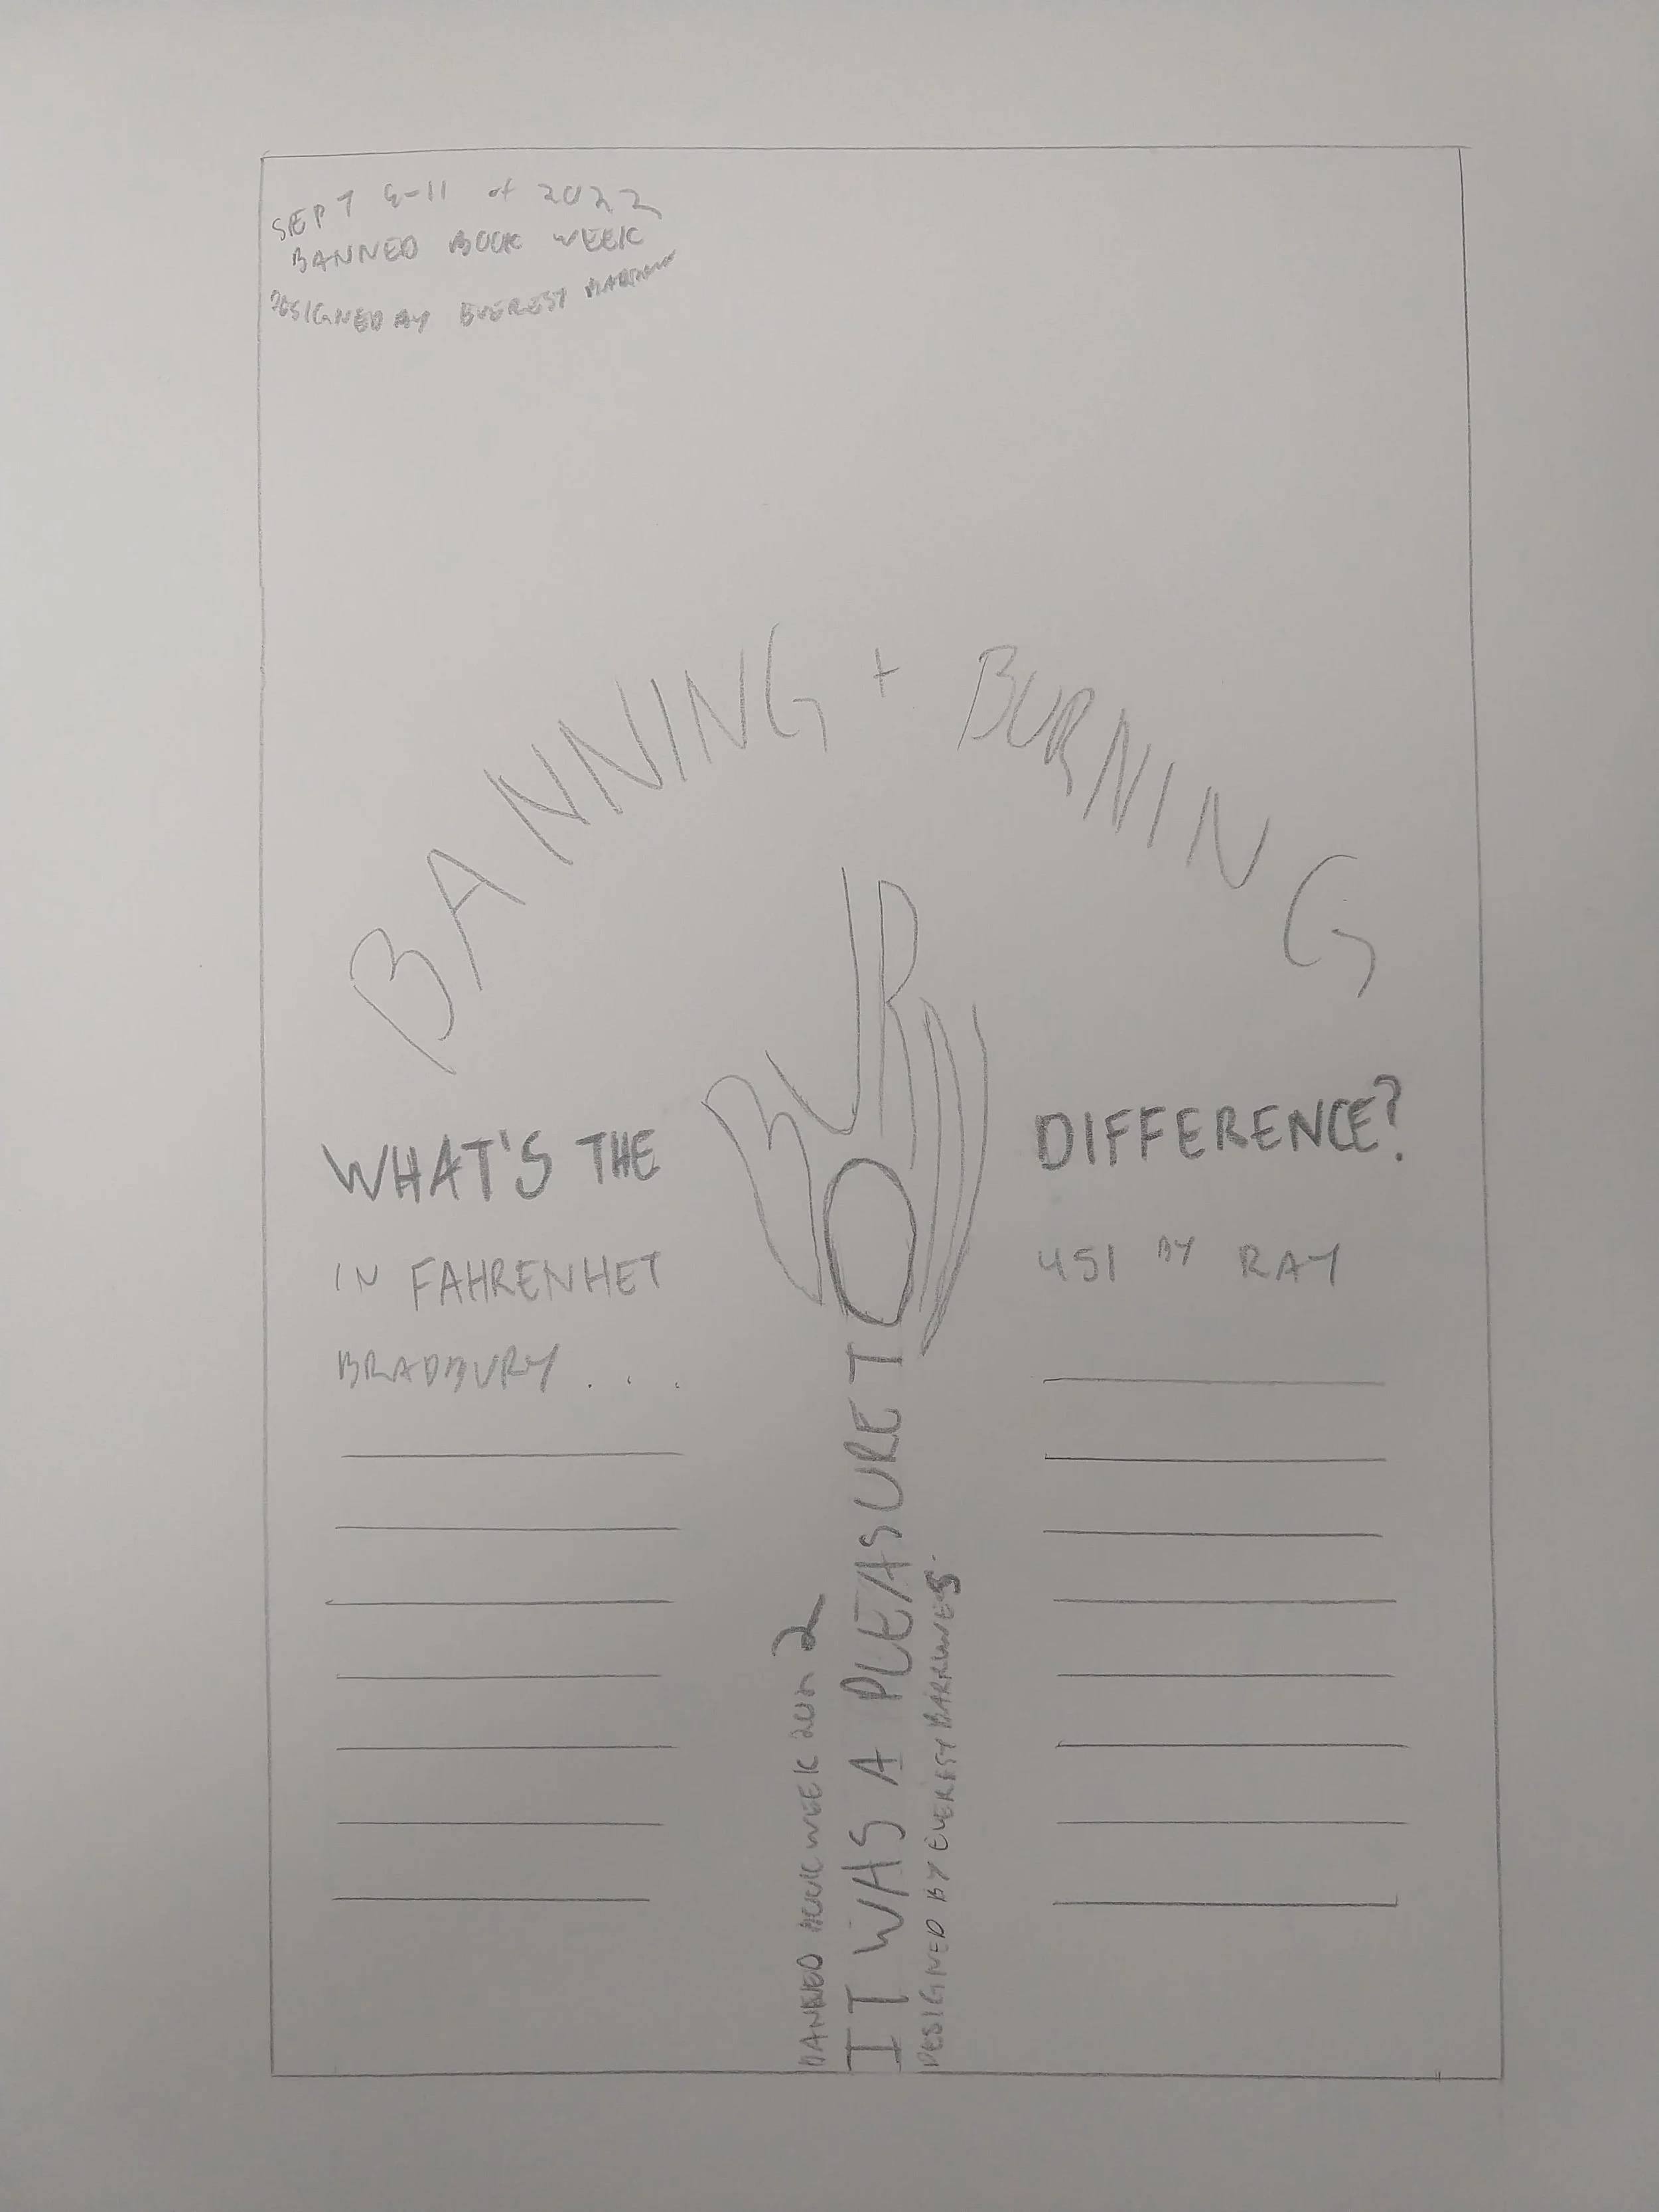 SEPT 4-11 of 2022
BANNED BOOK WEEK
DESIGNED BY EVEREST
BANNING + BURNING
BURN
WHAT'S THE DIFFERENCE?
IN FAHRENHET 451 BY RAY
BRADBURY . . .
BANNED BOOK WEEK 2022
IT WAS A PLEASURE TO
DESIGNED BY EVEREST